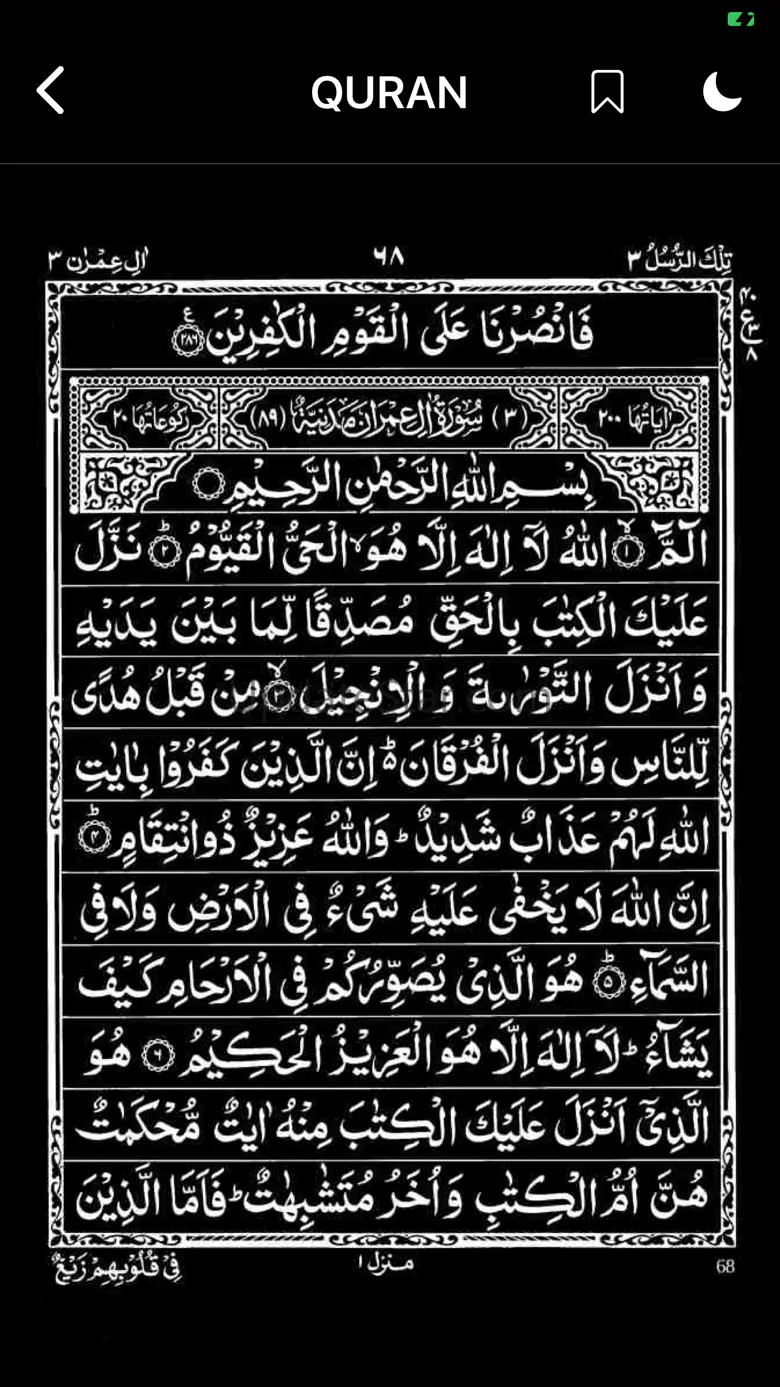 QURAN
تِلْكَ الرُّسُلُ ٣
٦٨
اٰلِ عِمْرٰن ٣
ع
٨
فَانْصُرْنَا عَلَى الْقَوْمِ الْكٰفِرِيْنَ ﴿٢٨٦﴾ ع
اٰيَاتُهَا ٢٠٠
(٣) سُوْرَةُ اٰلِ عِمْرَانَ مَدَنِيَّةٌ (٨٩)
رُكُوْعَاتُهَا ٢٠
بِسْمِ اللّٰهِ الرَّحْمٰنِ الرَّحِيْمِ
الٓمَّٓ ﴿١﴾ۙ اللّٰهُ لَاۤ اِلٰهَ اِلَّا هُوَ ۙ الْحَيُّ الْقَيُّوْمُ ﴿٢﴾ؕ نَزَّلَ
عَلَيْكَ الْكِتٰبَ بِالْحَقِّ مُصَدِّقًا لِّمَا بَيْنَ يَدَيْهِ
وَاَنْزَلَ التَّوْرٰىةَ وَالْاِنْجِيْلَ ﴿٣﴾ۙ مِنْ قَبْلُ هُدًى
لِّلنَّاسِ وَاَنْزَلَ الْفُرْقَانَ ؕ۬ اِنَّ الَّذِيْنَ كَفَرُوْا بِاٰيٰتِ
اللّٰهِ لَهُمْ عَذَابٌ شَدِيْدٌ ؕ وَاللّٰهُ عَزِيْزٌ ذُوانْتِقَامٍ ﴿٤﴾ؕ
اِنَّ اللّٰهَ لَا يَخْفٰى عَلَيْهِ شَيْءٌ فِى الْاَرْضِ وَلَا فِى
السَّمَآءِ ﴿٥﴾ؕ هُوَ الَّذِيْ يُصَوِّرُكُمْ فِى الْاَرْحَامِ كَيْفَ
يَشَآءُ ؕ لَاۤ اِلٰهَ اِلَّا هُوَ الْعَزِيْزُ الْحَكِيْمُ ﴿٦﴾ هُوَ
الَّذِيْۤ اَنْزَلَ عَلَيْكَ الْكِتٰبَ مِنْهُ اٰيٰتٌ مُّحْكَمٰتٌ
هُنَّ اُمُّ الْكِتٰبِ وَاُخَرُ مُتَشٰبِهٰتٌ ؕ فَاَمَّا الَّذِيْنَ
فِيْ قُلُوْبِهِمْ زَيْغٌ
منزل ١
68